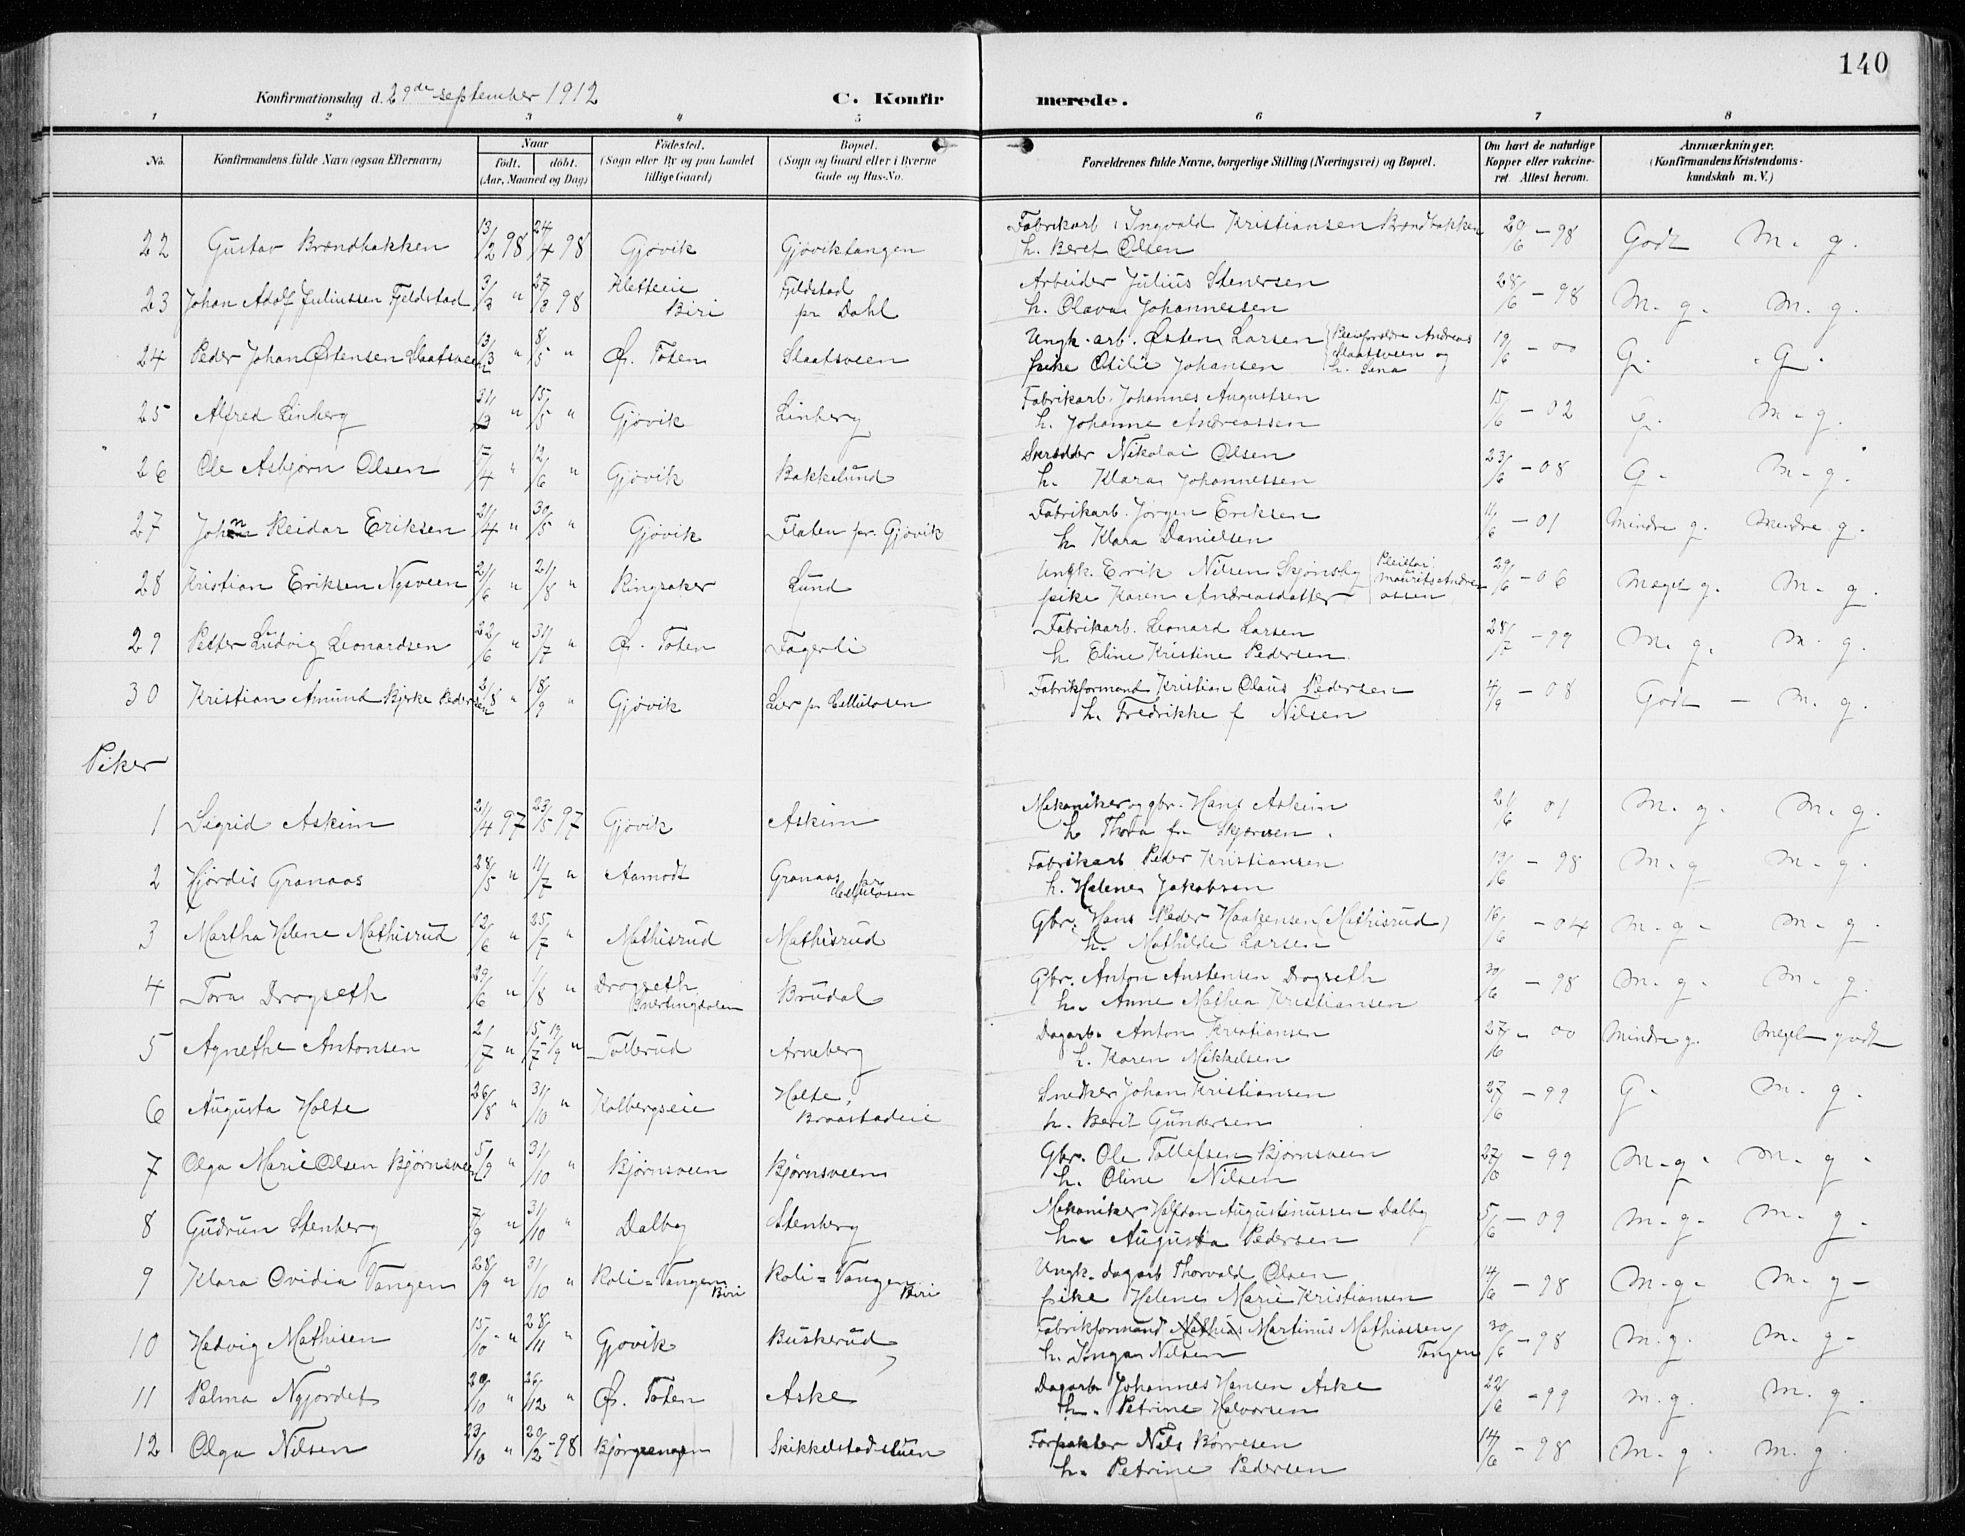 140
Konfirmationsdag d. 29de september 1912 C. Konfirmerede.
1 2 3 4 5 6 7 8
No. Konfirmandens fulde Navn (ogsaa Efternavn) Naar født. døbt. (Aar, Maaned og Dag) Fødested. (Sogn eller By og paa Landet tillige Gaard) Bopæl. (Sogn og Gaard eller i Byerne Gade og Hus-No. Forældrenes fulde Navne, borgerlige Stilling (Næringsvei) og Bopæl. Om havt de naturlige Kopper eller vakcineret. Attest herom. Anmærkninger. (Konfirmandens Kristendomskundskab m. V.)
22 Gustav Brændbakken 13/2 98 24/4 98 Gjøvik Gjøviktangen Fabrikarb. Ingvald Kristiansen Brændbakken 20/6 - 98 Godt M. g.
h. Beret Olsen
23 Johan Adolf Juliussen Fjeldstad 3/3 " 27/3 98 Kletteie Biri Fjeldstad pr Dahl Arbeider Julius Stenersen 28/6 - 98 M. g. M. g.
h. Olava Johannessen
24 Peder Johan Østensen Slaatsveen 13/3 " 8/5 " Ø. Toten Slaatsveen Ungk. arb. Østen Larsen Pleieforældre Andreas 19/6 - 00 G. G.
pike Otilie Johansen Slaatsveen og h. Lena
25 Alfred Linberg 31/3 " 15/5 " Gjøvik Linberg Fabrikarb. Johannes Augustsen 15/6 - 02 G. M. g.
h. Johanne Andreassen
26 Ole Asbjørn Olsen 17/4 " 12/6 " Gjøvik Bakkelund Skrædder Nikolai Olsen 23/6 - 08 G. M. g.
h. Klara Johannessen
27 Johan Reidar Eriksen 21/4 " 30/5 " Gjøvik Flaten pr. Gjøvik Fabrikarb. Jørgen Eriksen 11/6 - 01 Mindre g. Mindre g.
h Klara Danielsen
28 Kristian Eriksen Nysveen 2/6 " 21/8 " Ringsaker Lund Ungk. Erik Nilsen Skjønsby Pleiefar 29/6 - 06 Meget g. M. g.
pike Karen Andreasdatter Maurits Andreassen
29 Petter Ludvig Leonardsen 22/6 " 31/7 " Ø. Toten Fagerli Fabrikarb. Leonard Larsen 28/7 - 99 M. g. M. g.
h Eline Kristine Pedersen
30 Kristian Amund Bjerke Pedersen 2/8 " 18/9 " Gjøvik Lier pr Cellulosen Fabrikformand Kristian Claus Pedersen 4/9 - 08 Godt - M. g.
h. Fredrikke f Nilsen
Piker
1 Sigrid Askim 21/4 97 23/5 97 Gjøvik Askim Mekaniker og gbr. Hans Askim 21/6 01 M. g. M. g.
h Thora f. Skjerven
2 Hjørdis Granaas 28/5 " 11/7 " Aamodt Granaas pr Cellulosen Fabrikarb Peder Kristiansen 19/6 - 98 M. g M. g.
h. Helene Jakobsen
3 Martha Helene Mathisrud 12/6 " 25/7 " Mathisrud Mathisrud Gbr. Hans Peder Haakensen (Mathisrud) 16/6 - 04 M. g. M. g.
h. Mathilde Larsen
4 Tora Drogseth 29/6 " 1/8 " Drogseth Snertingdalen Brudal Gbr. Anton Anstensen Drogseth 30/6 - 98 M. g. M. g.
h. Anne Mathea Kristiansen
5 Agnethe Antonsen 2/7 " 15/7 19/9 " Tollerud Arneberg Dagarb. Anton Kristiansen 27/6 - 00 Mindre g. Meget godt
h. Karen Mikkelsen
6 Augusta Holte 26/8 " 31/10 " Kolbergseie Holte, Braastadeie Snedker Johan Kristiansen 27/6 - 99 G. M. g.
h. Berit Gundersen
7 Olga Marie Olsen Bjørnsveen 5/9 " 31/10 " Bjørnsveen Bjørnsveen Gbr. Ole Tollefsen Bjørnsveen 27/6 - 99 M. g. M. g.
h. Oline Nilsen
8 Gudrun Stenberg 7/9 " 31/10 " Dalby Stenberg Mekaniker Halfdan Augustinussen Dalby 5/6 - 09 M. g. M. g.
h. Augusta Pedersen
9 Klara Ovidia Vangen 28/9 " 31/10 " Roli=Vangen Biri Roli=Vangen Biri Ungk. dagarb Thorvald Olsen 14/6 - 98 M. g. M. g-
pike Helene Marie Kristiansen
10 Hedvig Mathisen 15/10 " 28/11 " Gjøvik Buskerud Fabrikformand Martinus Mathiassen 30/6 - 98 M. g. M. g-
h. Inga Nilsen Tangen
11 Palma Nyjordet 20/10 " 26/12 " Ø. Toten Aske Dagarb Johannes Hansen Aske 22/6 - 99 m. g. m. g.
h. Petrine Halvorsen
12 Olga Nilsen 23/10 " 20/2 - 98 Skikkelstadstuen Forpakter Nils Børresen 14/6 - 98 M. g. m. g.
h. Petrine Pedersen